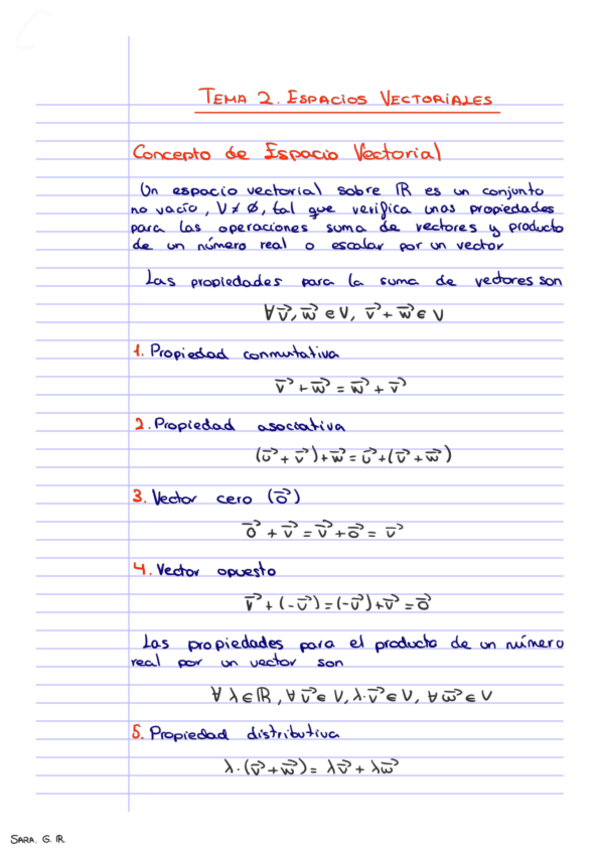 TEMA 2. ESPACIOS VECTORIALES
Concepto de Espacio Vectorial
Un espacio vectorial sobre ℝ es un conjunto
no vacío, V ≠ ∅, tal que verifica unas propiedades
para las operaciones suma de vectores y producto
de un número real o escalar por un vector
Las propiedades para la suma de vectores son
∀ v⃗, w⃗ ∈ V, v⃗ + w⃗ ∈ V
1. Propiedad conmutativa
v⃗ + w⃗ = w⃗ + v⃗
2. Propiedad asociativa
(u⃗ + v⃗) + w⃗ = u⃗ + (v⃗ + w⃗)
3. Vector cero (o⃗)
o⃗ + v⃗ = v⃗ + o⃗ = v⃗
4. Vector opuesto
v⃗ + (-v⃗) = (-v⃗) + v⃗ = o⃗
Las propiedades para el producto de un número
real por un vector son
∀ λ ∈ ℝ, ∀ v⃗ ∈ V, λ · v⃗ ∈ V, ∀ w⃗ ∈ V
5. Propiedad distributiva
λ · (v⃗ + w⃗) = λv⃗ + λw⃗
SARA. G. R.